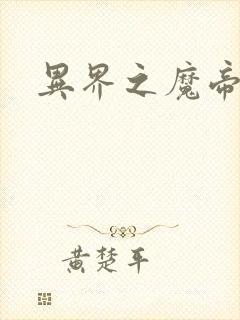 異界之魔帝
黃楚平